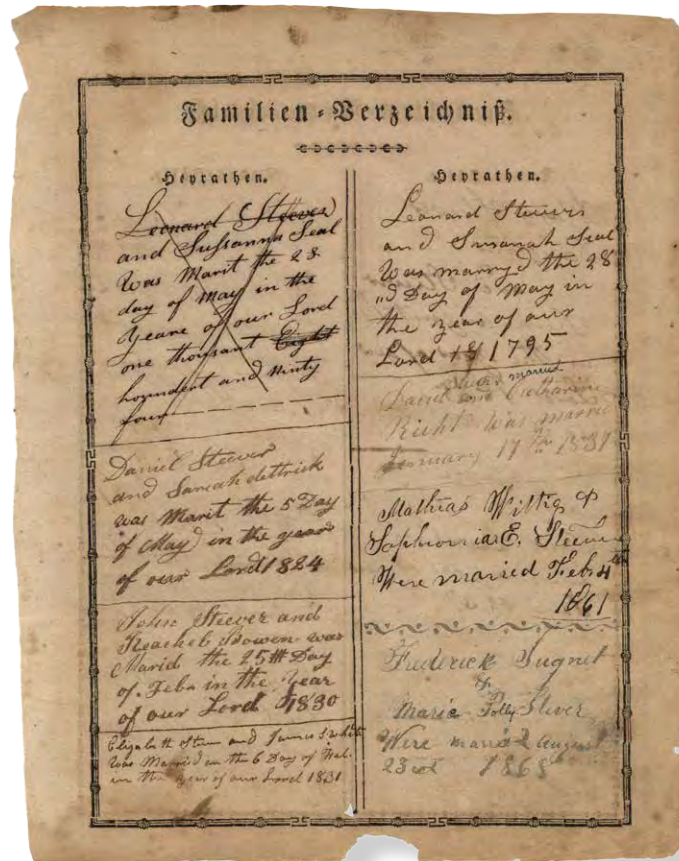 Familien-Verzeichniß.
Heyrathen.
Leonard Steever
and Sussanna Seal
Was Marit the 28
day of May in the
yeare of our Lord
one thousant Eight
houndert and Ninty
four
Daniel Steever
and Sareah dettrick
was Marit the 5 Day
of May in the year
of our Lord 1824
John Steever and
Reacheb Bowen was
Marid the 25th Day
of Feba in the Year
of our Lord 1830
Elizabeth and James
Was Married on the 6 Day of
in the year of our Lord 1831
Heyrathen.
Leonard Steevers
and Susanah Seal
Was marryd the 28
"d Day of May in
the year of our
Lord 1795
married
David and Catharine
Richt was married
January 17th
Mathias &
Sophronia E. Steever
Were married Feb 4th
1861
Frederick Sugnet
&
Maria Polly Stever
Were maried August
23rd 1868